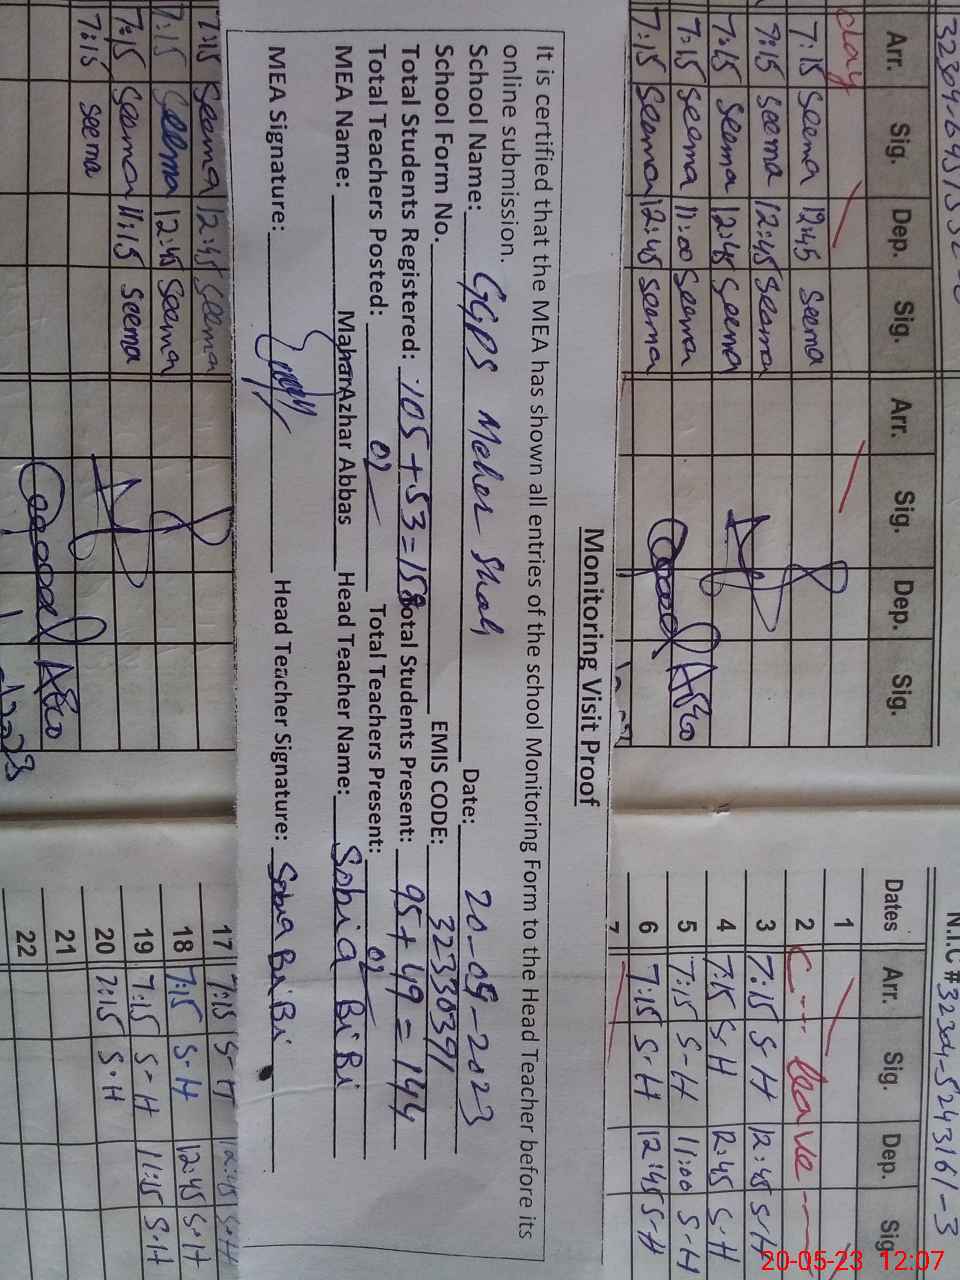 Monitoring Visit Proof
It is certified that the MEA has shown all entries of the school Monitoring Form to the Head Teacher before its
online submission.
School Name: GGPS Meher Shah Date: 20-05-2023
School Form No. EMIS CODE: 32330391
Total Students Registered: 105+53=158 Total Students Present: 95+49=144
Total Teachers Posted: 02 Total Teachers Present: 02
MEA Name: Mahar Azhar Abbas Head Teacher Name: Sobia BiBi
MEA Signature: Head Teacher Signature: Sobia BiBi
Arr. Sig. Dep. Sig. Arr. Sig. Dep. Sig.
7:15 Seema 12:45 Seema
7:15 Seema 12:45 Seema
7:45 Seema 12:45 Seema
7:15 Seema 11:00 Seema
7:15 Seema 12:45 Seema
7:15 Seema 12:45 Seema
7:15 Seema 12:45 Seema
7:15 Seema 11:15 Seema
7:15 Seema
N.I.C # 32304-5243161-3
Dates Arr. Sig. Dep. Sig
1
2 leave
3 7:15 S-H 12:45 S-H
4 7:15 S-H 12:45 S-H
5 7:15 S-H 11:00 S-H
6 7:15 S-H 12:45 S-H
7
17 7:15 S-H 12:45 S-H
18 7:15 S-H 12:45 S-H
19 7:15 S-H 11:15 S-H
20 7:15 S-H
21
22
20-05-23 12:07